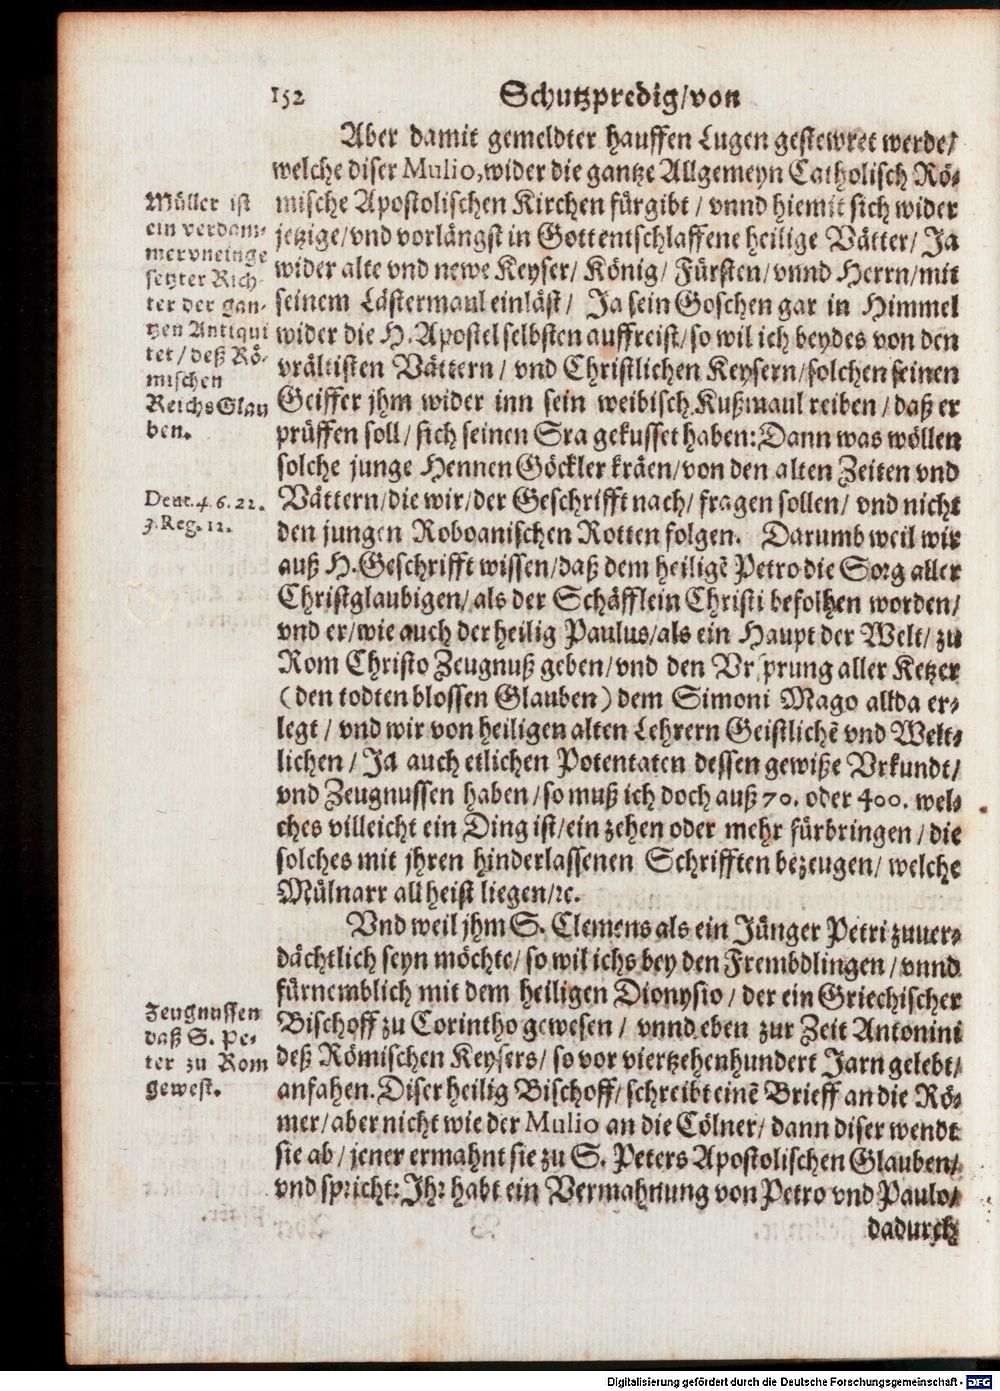 152 Schutzpredig/von
Aber damit gemeldter hauffen Lugen gestewret werde/
welche diser Mulio, wider die gantze Allgemeyn Catholisch Rö-
mische Apostolischen Kirchen fürgibt / vnnd hiemit sich wider
jetzige/vnd vorlängst in Gott entschlaffene heilige Vätter/ Ja
wider alte vnd newe Keyser/ König/ Fürsten/ vnnd Herrn/mit
seinem Lästermaul einläst/ Ja sein Goschen gar in Himmel
wider die H. Apostel selbsten auffreist/so wil ich beydes von den
vrältisten Vättern / vnd Christlichen Keysern/solchen seinen
Geiffer jhm wider inn sein weibisch Kußmaul reiben / daß er
prüffen soll/ sich seinen Sra gekusset haben: Dann was wöllen
solche junge Hennen Göckler kräen/von den alten Zeiten vnd
Vättern/die wir/der Geschrifft nach/ fragen sollen/ vnd nicht
den jungen Roboanischen Rotten folgen. Darumb weil wir
auß H. Geschrifft wissen/daß dem heiligē Petro die Sorg aller
Christglaubigen/als der Schäfflein Christi befolhen worden/
vnd er/wie auch der heilig Paulus/als ein Haupt der Welt/ zu
Rom Christo Zeugnuß geben/vnd den Vrsprung aller Ketzer
(den todten blossen Glauben) dem Simoni Mago allda er-
legt / vnd wir von heiligen alten Lehrern Geistlichē vnd Welt-
lichen / Ja auch etlichen Potentaten dessen gewiße Vrkundt/
vnd Zeugnussen haben/so muß ich doch auß 70. oder 400. wel-
ches villeicht ein Ding ist/ein zehen oder mehr fürbringen/die
solches mit jhren hinderlassenen Schrifften bezeugen/ welche
Mülnarr all heist liegen/ꝛc.
Vnd weil jhm S. Clemens als ein Jünger Petri zuuer-
dächtlich seyn möchte/ so wil ichs bey den Frembdlingen / vnnd
fürnemblich mit dem heiligen Dionysio / der ein Griechischer
Bischoff zu Corintho gewesen / vnnd eben zur Zeit Antonini
deß Römischen Keysers/ so vor viertzehenhundert Jarn gelebt/
anfahen. Diser heilig Bischoff/ schreibt einē Brieff an die Rö-
mer/aber nicht wie der Mulio an die Cölner/ dann diser wendt
sie ab / jener ermahnt sie zu S. Peters Apostolischen Glauben/
vnd spricht: Ihr habt ein Vermahnung von Petro vnd Paulo/
dadurch
Möller ist
ein verdam-
mer vneinge
setzter Rich-
ter der gan-
tzen Antiqui
tet / deß Rö-
mischen
Reichs Glau
ben.
Deut. 4. 6. 22.
3. Reg. 12.
Zeugnussen
daß S. Pe-
ter zu Rom
gewest.
Digitalisierung gefördert durch die Deutsche Forschungsgemeinschaft - DFG